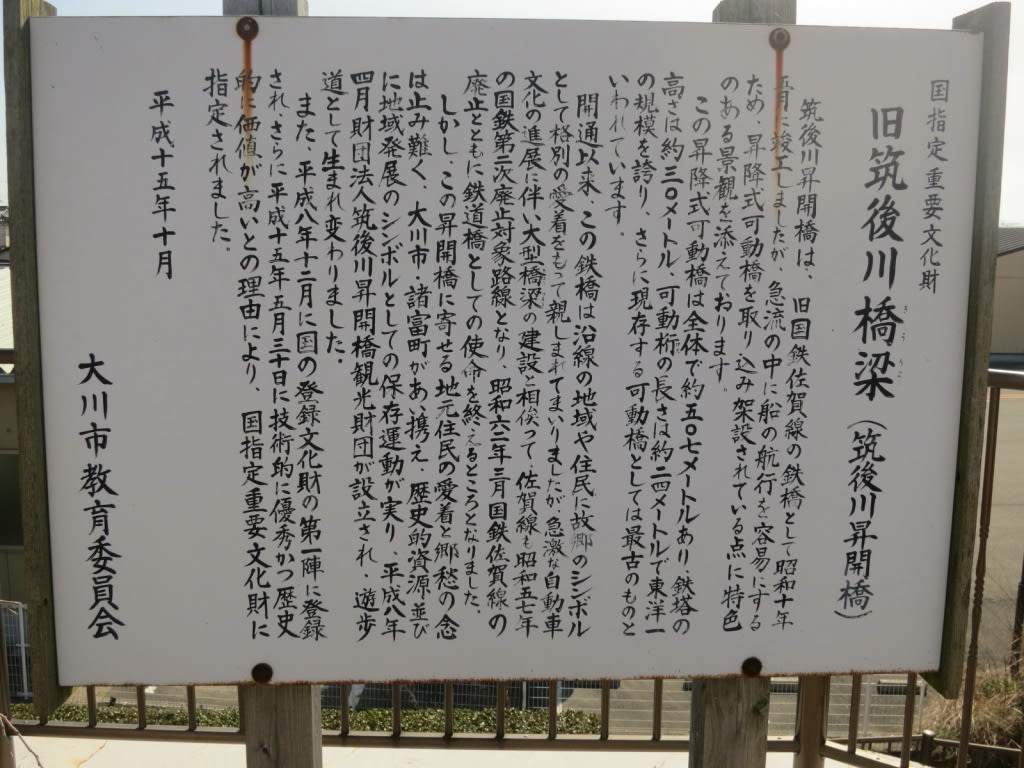 国指定重要文化財
旧筑後川橋梁(筑後川昇開橋)
きょうりょう
筑後川昇開橋は、旧国鉄佐賀線の鉄橋として昭和十年
五月に竣工しましたが、急流の中に船の航行を容易にする
ため、昇降式可動橋を取り込み架設されている点に特色
のある景観を添えております。
この昇降式可動橋は全体で約五〇七メートルあり、鉄塔の
高さは約三〇メートル、可動桁の長さは約二四メートルで東洋一
の規模を誇り、さらに現存する可動橋としては最古のものと
いわれています。
開通以来、この鉄橋は沿線の地域や住民に故郷のシンボル
として格別の愛着をもって親しまれてまいりましたが、急激な自動車
文化の進展に伴い大型橋梁の建設と相俟って、佐賀線も昭和五七年
の国鉄第二次廃止対象路線となり、昭和六二年三月国鉄佐賀線の
廃止とともに鉄道橋としての使命を終えるところとなりました。
しかし、この昇開橋に寄せる地元住民の愛着と郷愁の念
は止み難く、大川市・諸富町があい携え、歴史的資源並び
に地域発展のシンボルとしての保存運動が実り、平成八年
四月財団法人筑後川昇開橋観光財団が設立され、遊歩
道として生まれ変わりました。
また、平成八年十二月に国の登録文化財の第一陣に登録
され、さらに平成十五年五月三十日に技術的に優秀かつ歴史
的に価値が高いとの理由により、国指定重要文化財に
指定されました。
平成十五年十月
大川市教育委員会